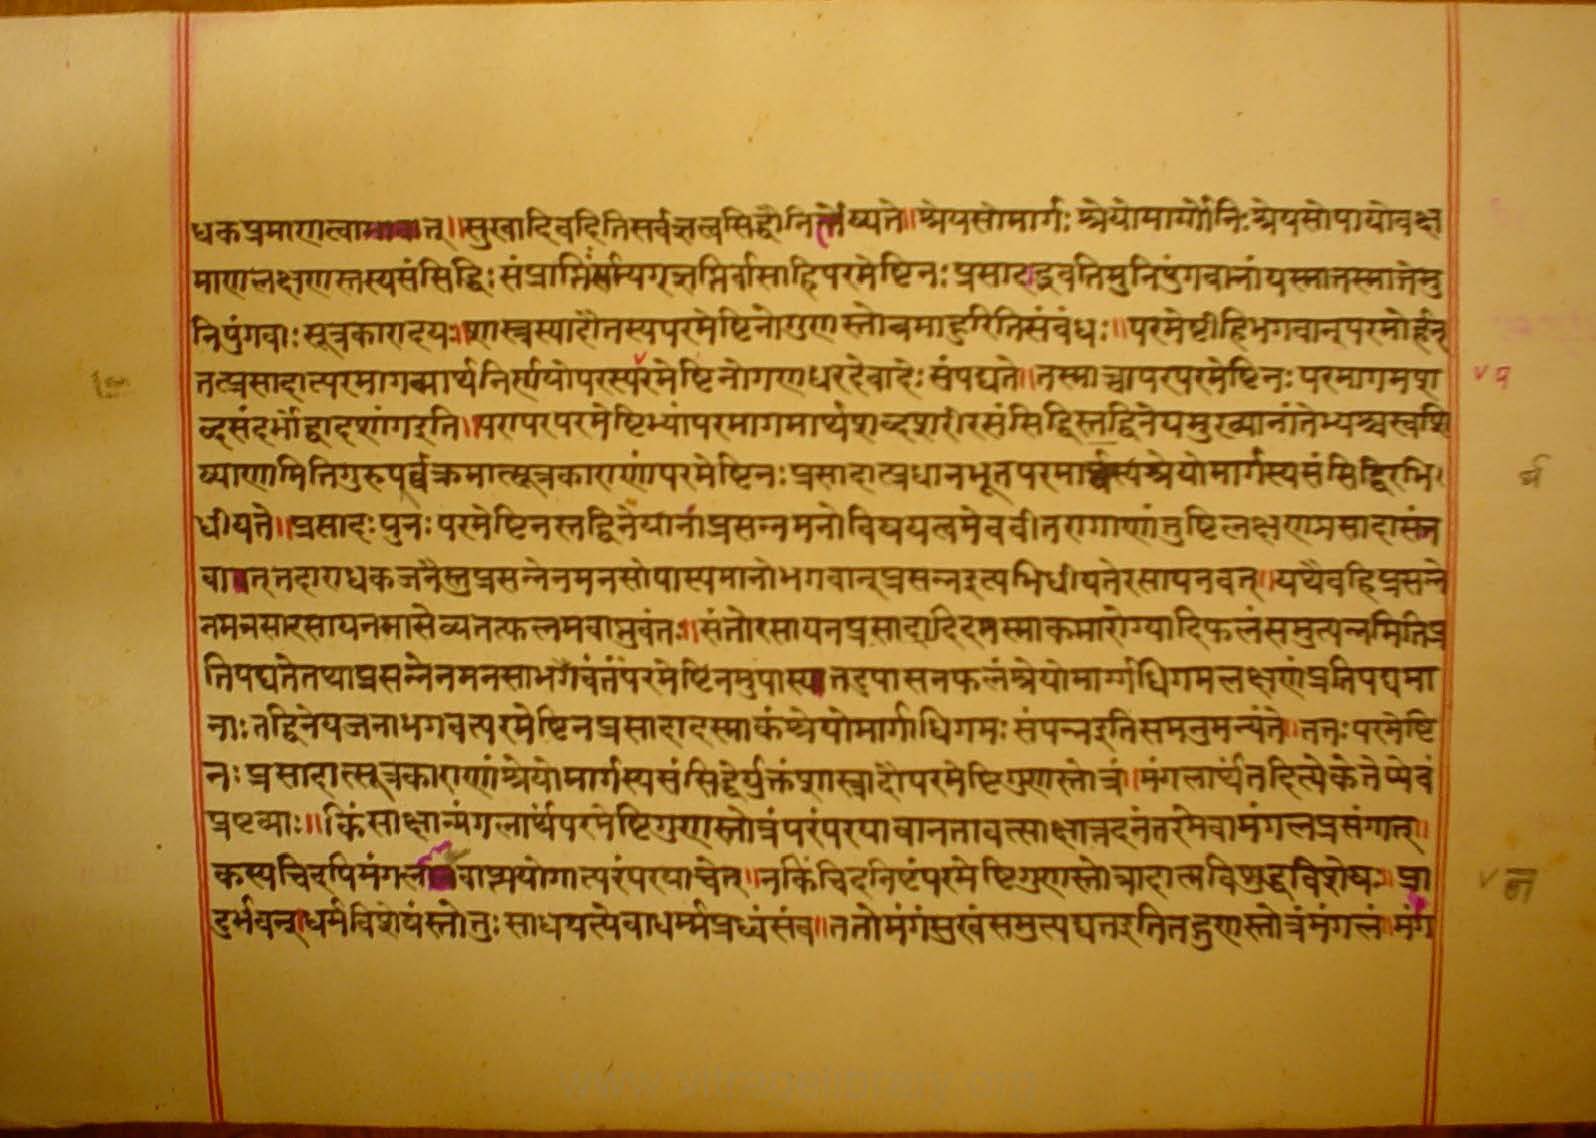 धकप्रमाणत्वाभावात्॥सुखादिवदितिसर्वज्ञत्वसिद्धौनिर्णेष्यते॥श्रेयसोमार्गः श्रेयोमार्गोनिःश्रेयसोपायोवक्ष्य
माणलक्षणस्तस्यसंसिद्धिः संप्राप्तिः सम्यग्ज्ञप्तिर्वासाहिपरमेष्टिनः प्रसादाद्भवतिमुनिपुंगवानांयस्मात्तस्मात्तेमु
निपुंगवाः सूत्रकारादयः॥शास्त्रस्यादौतस्यपरमेष्टिनोगुणस्तोत्रमाहुरितिसंबंधः॥परमेष्टीहिभगवान्परमोर्हन्
तत्प्रसादात्परमागमार्थनिर्णयोपरस्यरमेष्टिनोगणधरदेवादेः संपद्यते॥तस्माच्चापरपरमेष्टिनः परमागमश
ब्दसंदर्भोद्वादशांगइति॥परापरपरमेष्टिभ्यांपरमागमार्थशब्दशरीरसंसिद्धिस्तद्विनेयमुख्यानांतेभ्यश्चस्वशि
ष्याणामितिगुरुपूर्वक्रमात्सूत्रकाराणांपरमेष्टिनः प्रसादात्प्रधानभूतपरमार्थस्यश्रेयोमार्गस्यसंसिद्धिरभि
धीयते॥प्रसादः पुनः परमेष्टिनस्तद्विनेयानांप्रसन्नमनोविषयत्वमेववीतरागाणांतुष्टिलक्षणप्रसादासंभ
वात्तदाराधकजनैस्तुप्रसन्नेनमनसोपास्यमानोभगवान्प्रसन्नइत्यभिधीयतेरसायनवत्॥यथैवहिप्रसन्ने
नमनसारसायनमासेव्यतत्फलमवाप्नुवंतः॥संतोरसायनप्रसादादिदमस्माकमारोग्यादिफलंसमुत्पन्नमितिप्र
तिपद्यतेतथाप्रसन्नेनमनसाभगवंतंपरमेष्टिनमुपास्यतदुपासनफलंश्रेयोमार्गाधिगमलक्षणंप्रतिपद्यमा
नाः तद्विनेयजनाभगवत्परमेष्टिनप्रसादादस्माकंश्रेयोमार्गाधिगमः संपन्नइतिसमनुमन्यंते॥ततः परमेष्टि
नः प्रसादात्सूत्रकाराणांश्रेयोमार्गस्यसंसिद्धेर्युक्तंशास्त्रादौपरमेष्टिगुणस्तोत्रं॥मंगलार्थंतदित्येकेतेप्येवं
प्रष्टव्याः॥किंसाक्षान्मंगलार्थंपरमेष्टिगुणस्तोत्रंपरंपरयावानतावत्साक्षात्तदनंतरमेवामंगलप्रसंगात्॥
कस्यचिदपिमंगलानवाप्त्ययोगात्परंपरयाचेत्॥नकिंचिदनिष्टंपरमेष्टिगुणस्तोत्रादात्मविशुद्धविशेषः॥प्रा
दुर्भवन्॥धर्मविशेषंस्तोतुः साधयत्येवाधर्म्मप्रध्वंसंच॥ततोमंगंसुखंसमुत्पद्यतइतितद्गुणस्तोत्रंमंगलं॥मंग